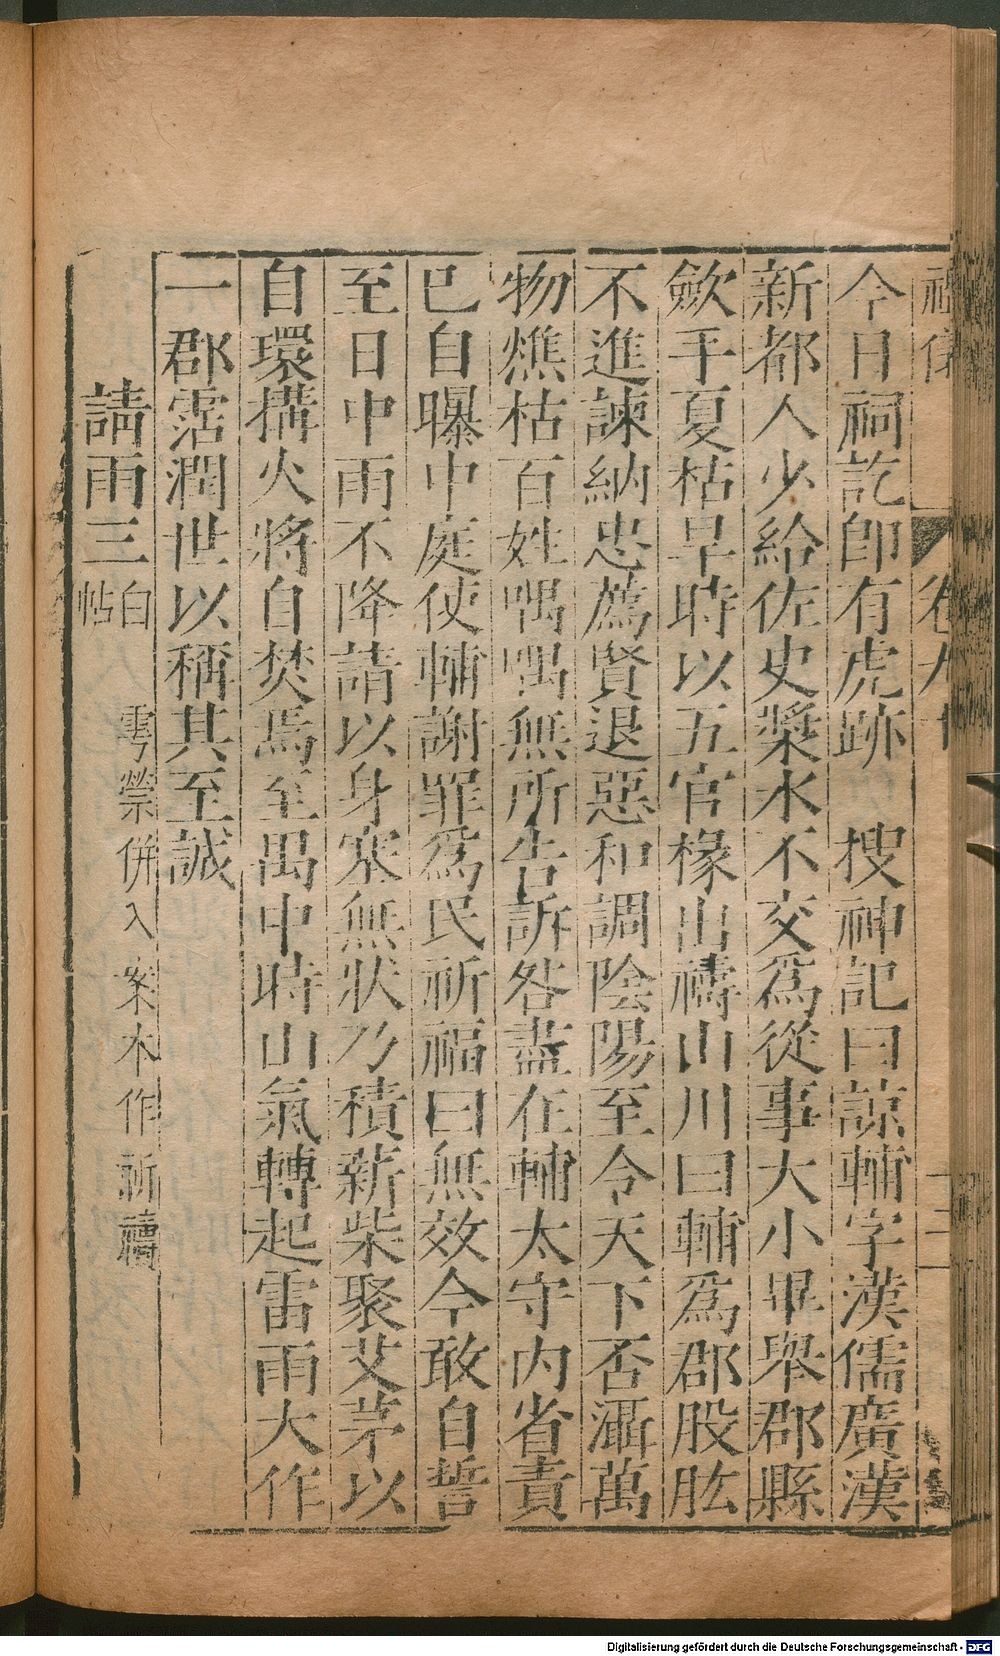 卷九
今日祠訖即有虎跡　搜神記曰諒輔字漢儒廣漢
新都人少給佐史漿水不交爲從事大小畢舉郡縣
歛手夏枯旱時以五官椽出禱山川曰輔爲郡股肱
不進諫納忠薦賢退惡和調陰陽至令天下否濇萬
物燋枯百姓喁喁無所告訴咎盡在輔太守內省責
已自曝中庭使輔謝罪爲民祈福曰無效今敢自誓
至日中雨不降請以身塞無狀乃積薪柴聚艾茅以
自環搆火將自焚焉至禺中時山氣轉起雷雨大作
一郡霑潤世以稱其至誠
請雨三白帖　雩禜併入　案本作祈禱
Digitalisierung gefördert durch die Deutsche Forschungsgemeinschaft - DFG